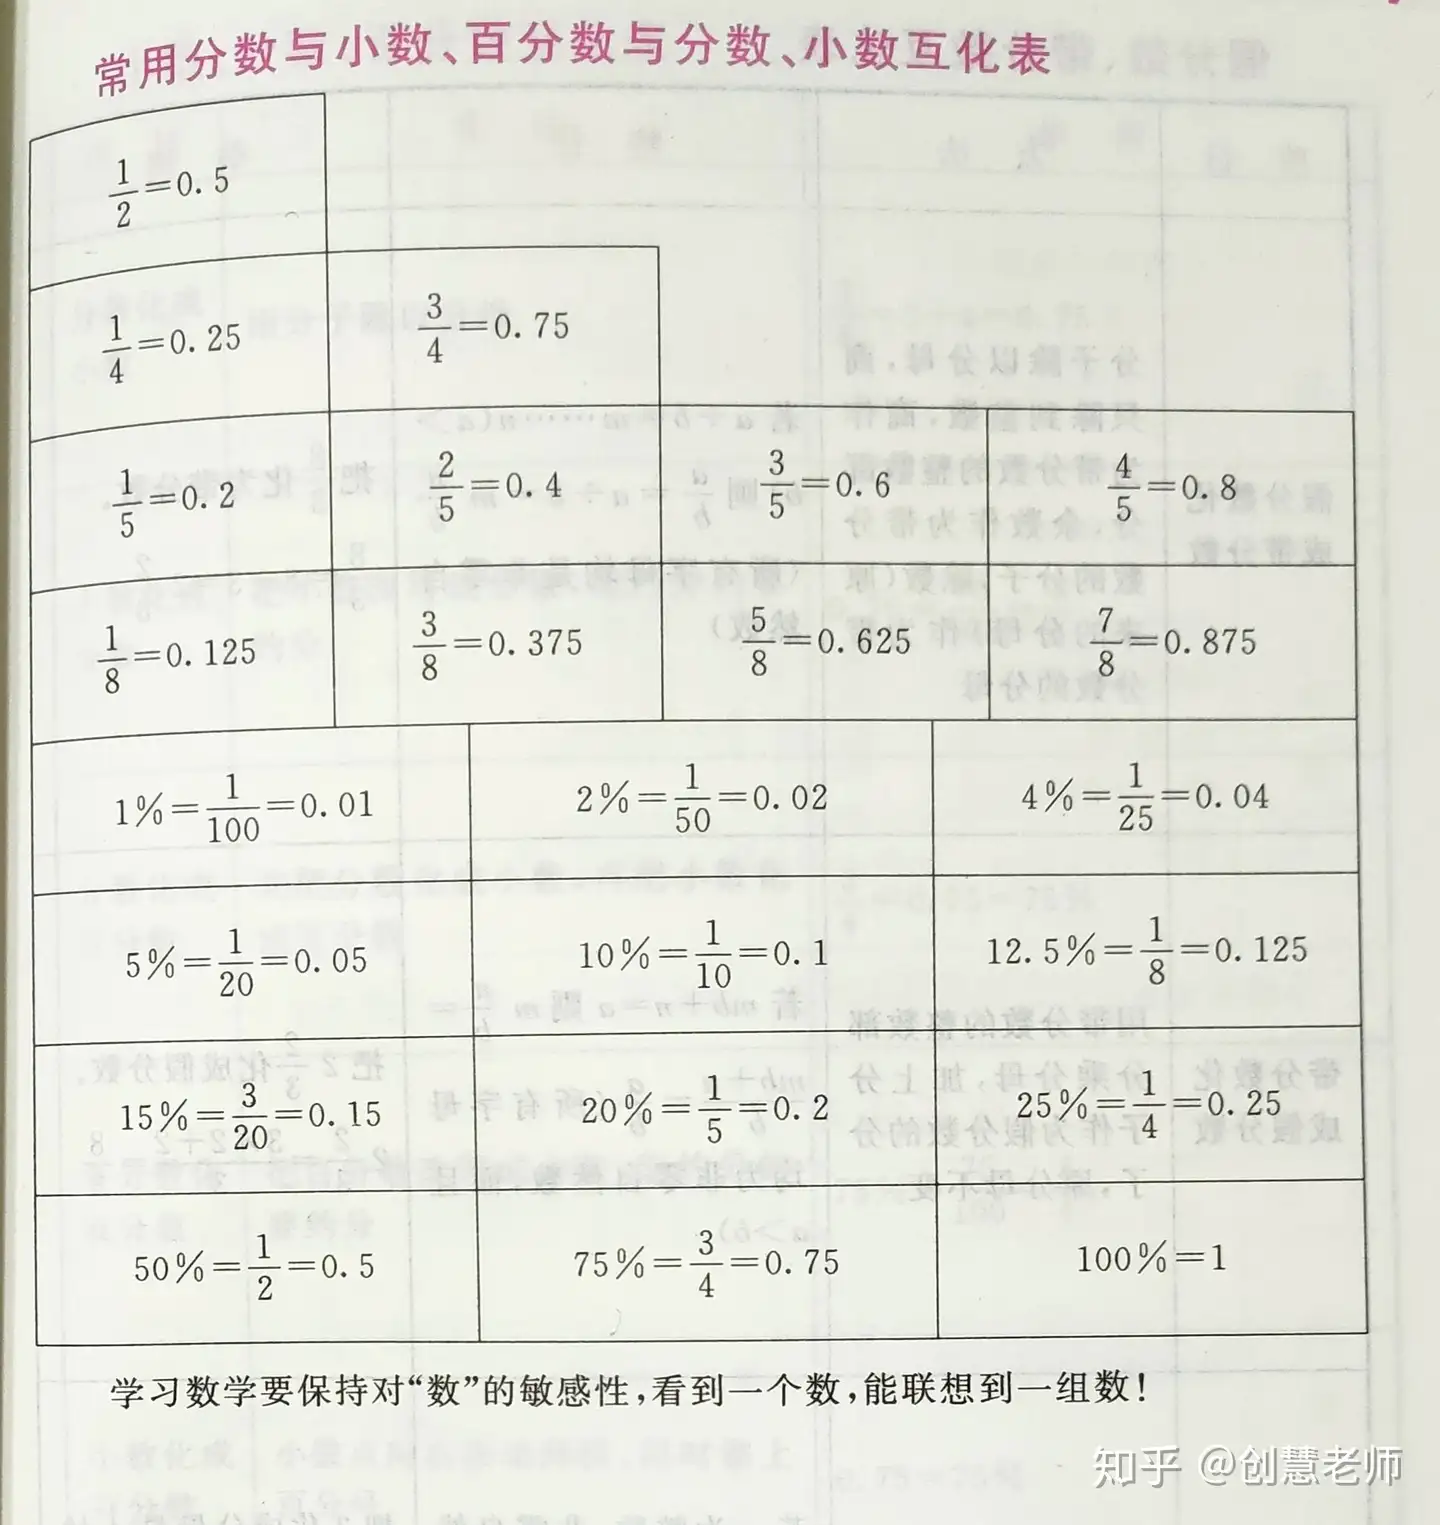 常用分数与小数、百分数与分数、小数互化表
1/2=0.5
1/4=0.25 3/4=0.75
1/5=0.2 2/5=0.4 3/5=0.6 4/5=0.8
1/8=0.125 3/8=0.375 5/8=0.625 7/8=0.875
1%=1/100=0.01 2%=1/50=0.02 4%=1/25=0.04
5%=1/20=0.05 10%=1/10=0.1 12.5%=1/8=0.125
15%=3/20=0.15 20%=1/5=0.2 25%=1/4=0.25
50%=1/2=0.5 75%=3/4=0.75 100%=1
学习数学要保持对“数”的敏感性,看到一个数,能联想到一组数!
知乎 @创慧老师